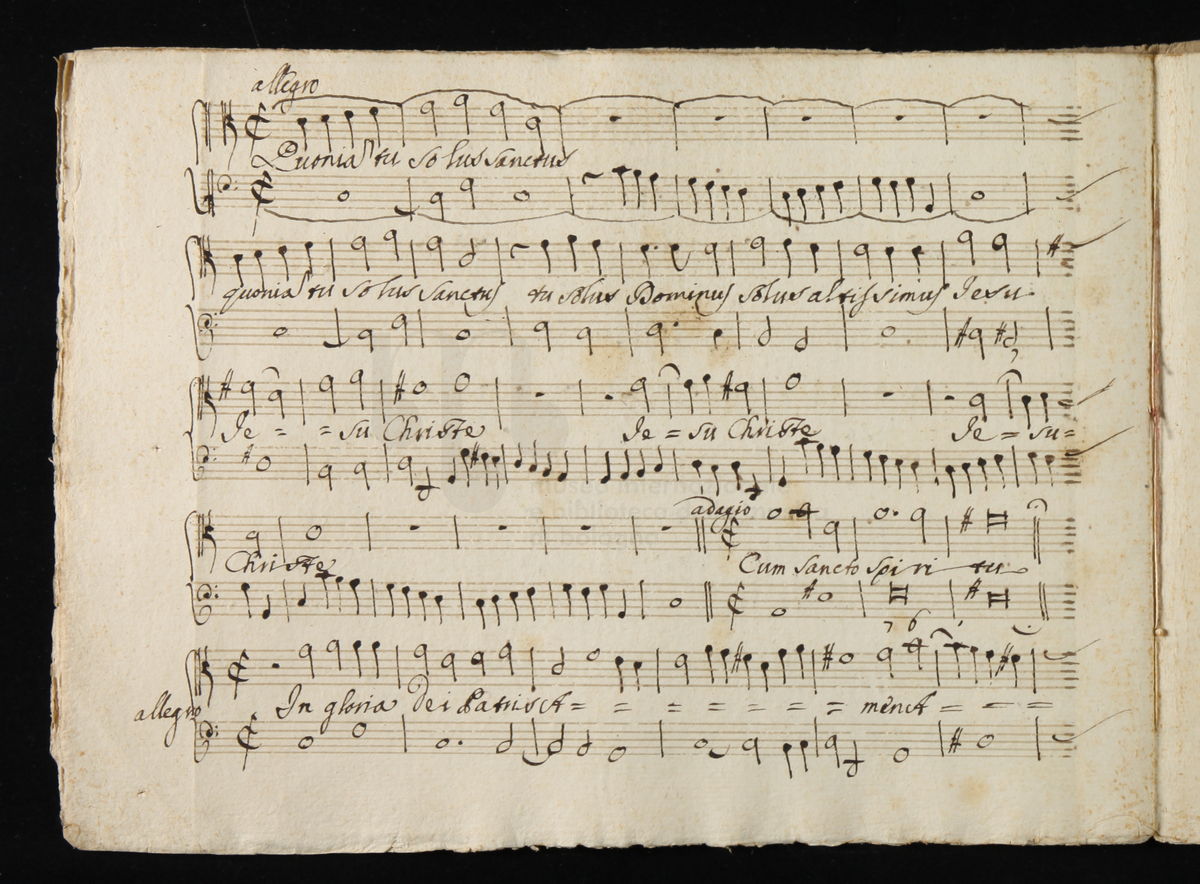 allegro
Quonia tu solus sanctus
quonia tu solus sanctus tu solus Dominus solus altissimus Jesu
Je = = su Christe Je = su Christe Je = su =
adagio
Christe Cum sancto spiri tu
7 6
In gloria Dei Patris A = = = = = = = men A = = =
allegro